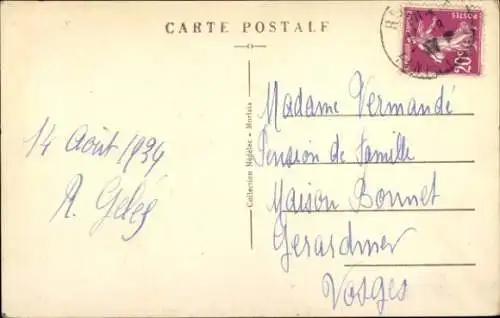 CARTE POSTALE
POSTES
20c
14 Août 1934
Collection Négelec - Morlaix
Madame Vermandé
Pension de Famille
Maison Bonnet
Gerardmer
Vosges